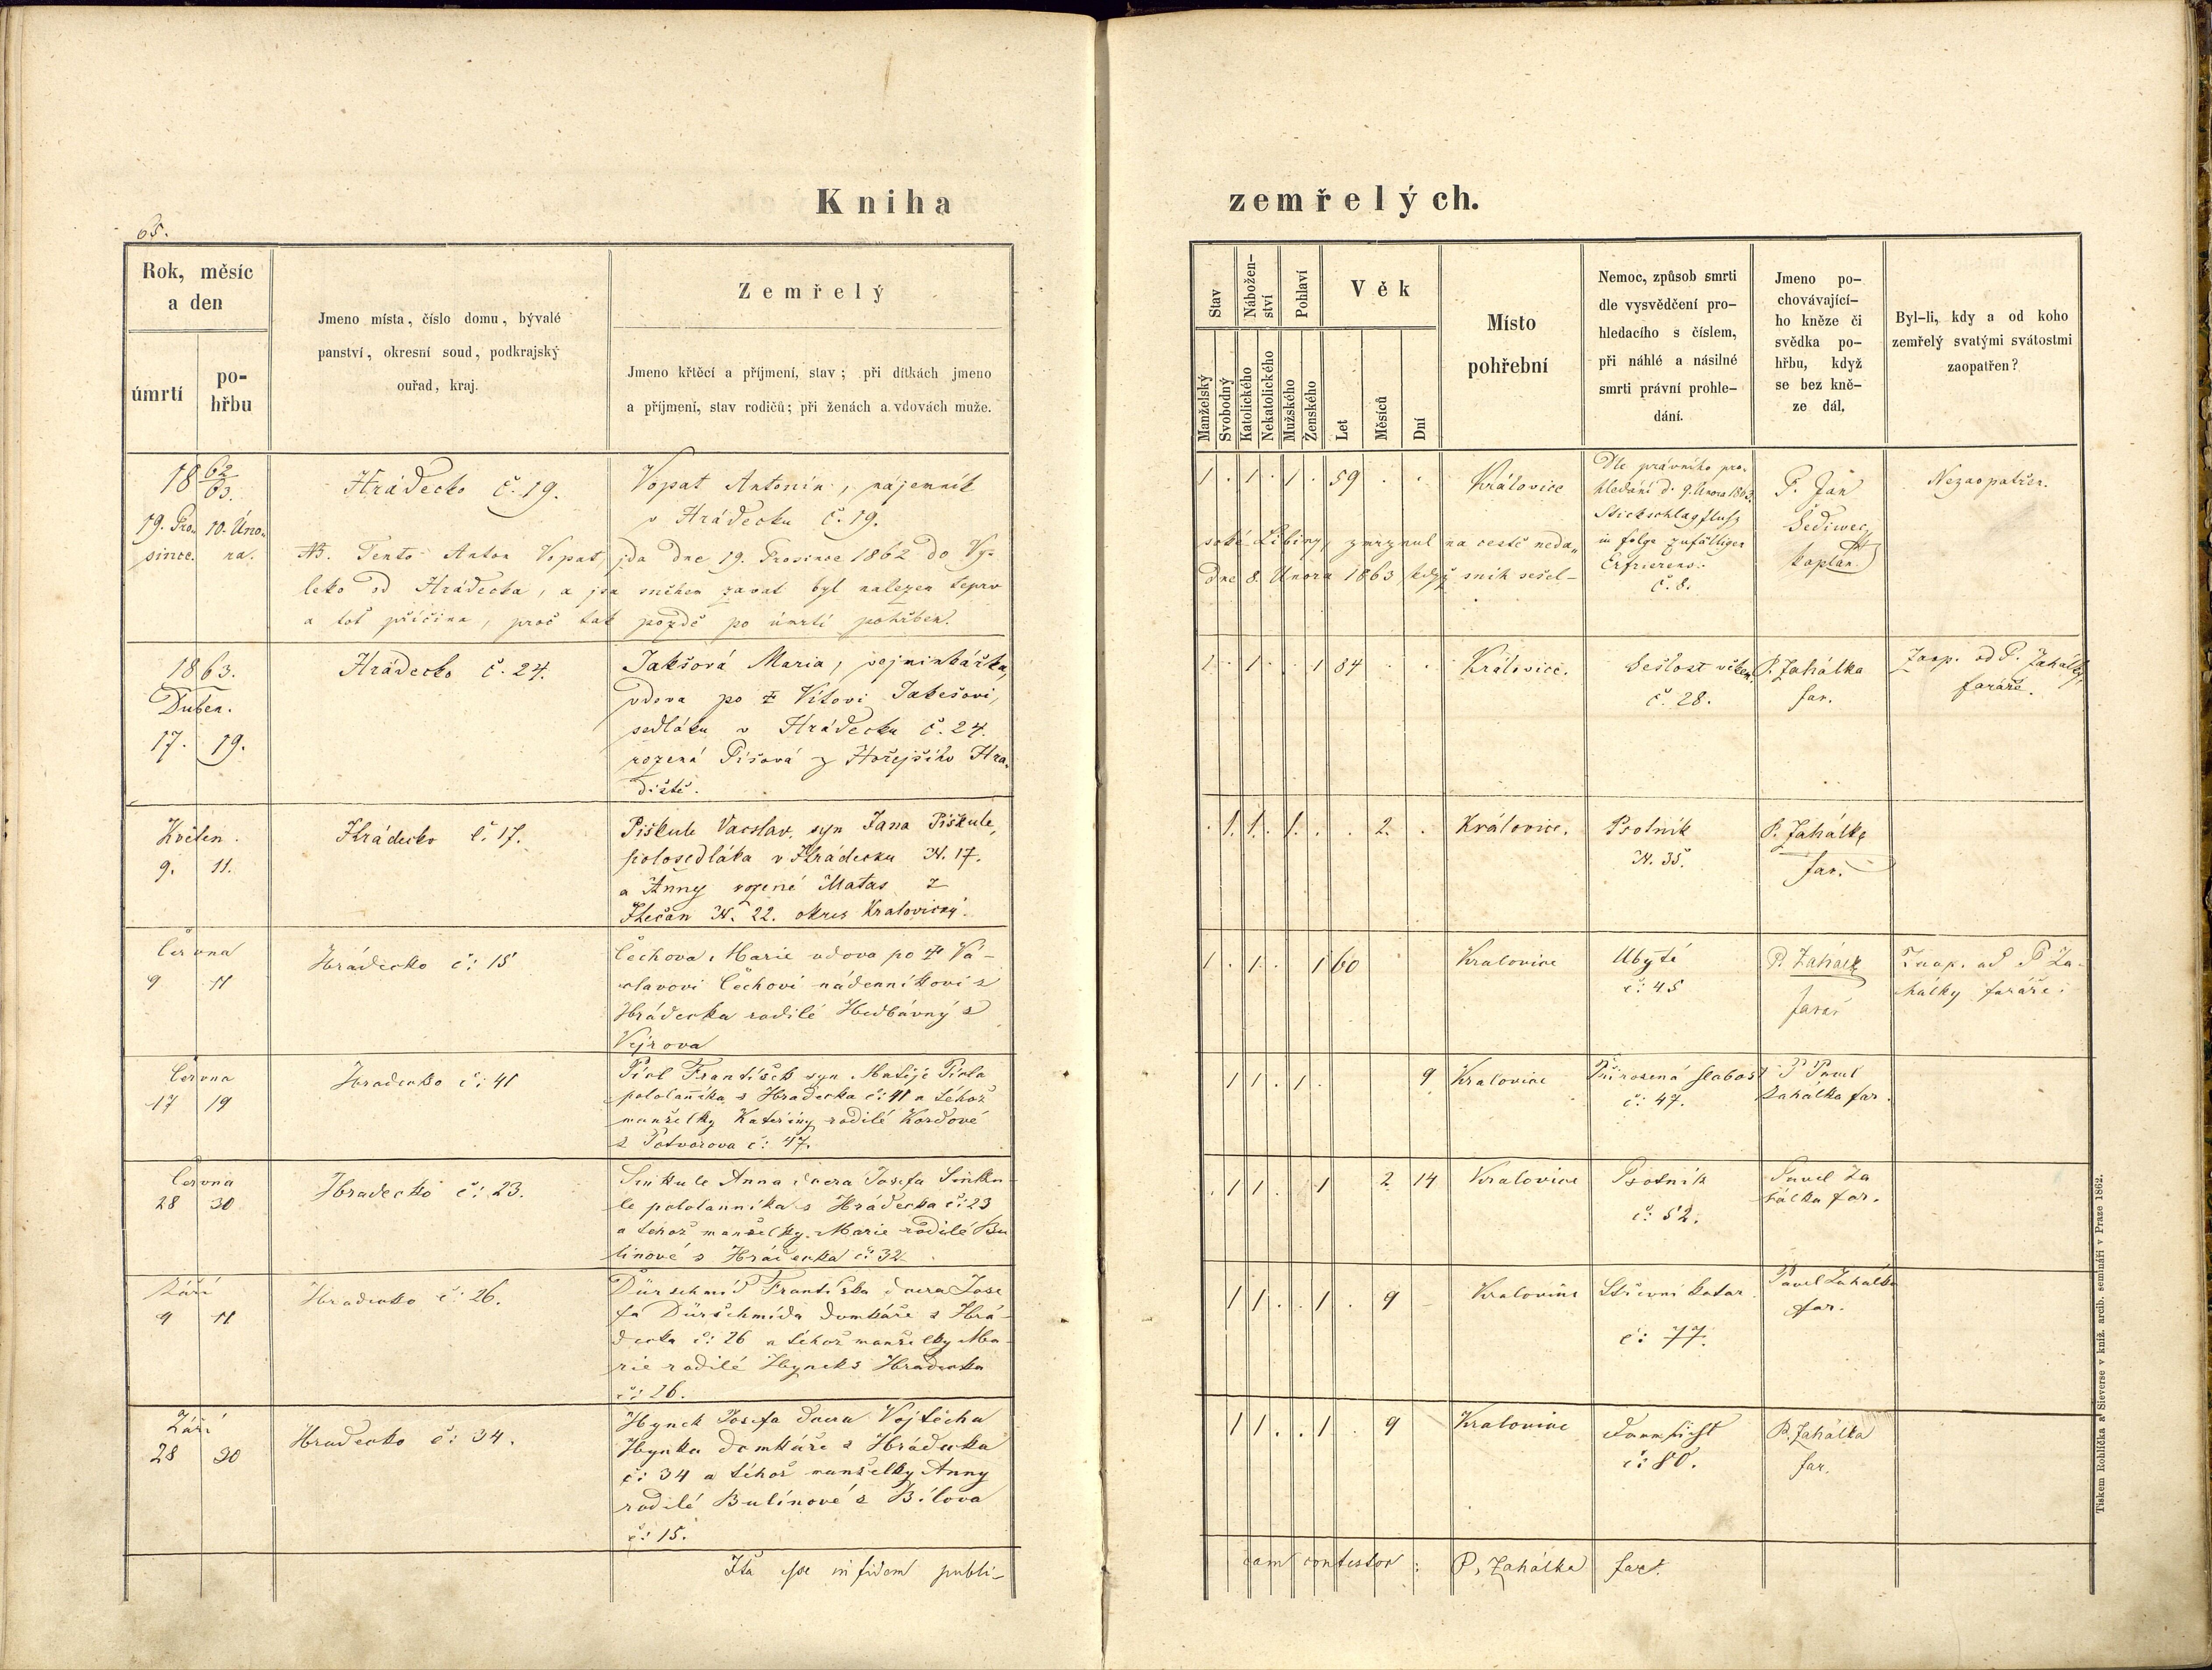 Kniha
zemřelých.
65.
Rok, měsíc
a den
úmrtí
po-
hřbu
Jmeno místa, číslo domu, bývalé
panství, okresní soud, podkrajský
ouřad, kraj.
Zemřelý
Jmeno křtěcí a příjmení, stav; při dítkách jmeno
a příjmení, stav rodičů; při ženách a vdovách muže.
Stav
Nábožen-
ství
Pohlaví
Věk
Manželský
Svobodný
Katolického
Nekatolického
Mužského
Ženského
Let
Měsíců
Dní
Místo
pohřební
Nemoc, způsob smrti
dle vysvědčení pro-
hledacího s číslem,
při náhlé a násilné
smrti právní prohle-
dání.
Jmeno po-
chovávající-
ho kněze či
svědka po-
hřbu, když
se bez kně-
ze dál.
Byl-li, kdy a od koho
zemřelý svatými svátostmi
zaopatřen?
18 62/63.
19. Pro-
since.
10. Úno-
ra.
Hrádecko č. 19.
Vopat Antonín, nájemník
v Hrádecku č. 19.
1 . 1 . 1 . 59 . .
Královice
Dle právního pro-
hledání d. 9. Února 1863.
Stickschlagfluß
in folge zufälligen
Erfrierens.
č. 8.
P. Jan
Šediwec
kaplan
Nezaopatřen.
NB. Tento Anton Vopat, jda dne 19. Prosince 1862 do Vy-
soké Libiny, zmrznul na cestě neda-
leko od Hrádecka, a jsa sněhem zavát byl nalezen teprv
dne 8. Února 1863 když sníh sešel-
a toť příčina, proč tak pozdě po úmrtí pohřben.
1863.
Duben.
17. 19.
Hrádecko č. 24.
Jakešová Maria, vejminkářka,
vdova po † Vítovi Jakešovi,
sedláku v Hrádecku č. 24.
rozená Píšová z Hořejšího Hra-
diště.
1 . 1 . . 1 84 . .
Královice.
Sešlost věkem
č. 28.
P. Zahálka
far.
Zaop. od P. Zahálky,
faráře.
Květen.
9. 11.
Hrádecko č. 17.
Piškule Vacslav, syn Jana Piškule,
polosedláka v Hrádecku N. 17.
a Anny rozené Matas z
Hlečan N. 22. okres Kralovický.
. 1. 1. . 1. . . 2. .
Královice.
Psotník
N. 35.
P. Zahálka
far.
Června
9 11
Hrádecko č: 15
Čechova Marie vdova po † Vá-
clavovi Čechovi nádenníkovi s
Hrádecka rodilé Hedbávný s
Vejrova
1 . 1 . . 1 60
Kralovice
Ubytě
č: 45
P. Zahálk
farář
Zaop. od P Za-
hálky faráře.
Června
17 19
Hradecko č: 41
Pirl František syn Matěje Pirla
pololanníka s Hradecka č: 41 a téhož
manželky Kateřiny rodilé Kordové
z Potvorova č: 47.
1 1 . 1 . 9
Kralovice
Přirozená slabost
č: 47.
P Pavel
Zahálka far.
Června
28 30
Hradecko č: 23.
Sinkule Anna dcera Josefa Sinku-
le pololanníka s Hrádecka č: 23
a téhož manželky Marie rodilé Bu
linové s Hrádecka č: 32
. 1 1 . 1 2 14
Kralovice
Psotník
č: 52.
Pavel Za
hálka far.
Září
9 11
Hradecko č: 26.
Dürschmid Františka dcera Jose
fa Dürschmída domkáře z Hrá-
decka č: 26 a téhož manželky Ma-
rie rodilé Hynek s Hradecka
č: 26.
1 1 . . 1 . 9
Kralovice
Střevní katar.
č: 77.
Pavel Zahálka
far.
Září
28 30
Hradecko č: 34.
Hynek Josefa dcera Vojtěcha
Hynka domkáře z Hrádecka
č: 34 a téhož manželky Anny
rodilé Bulínové z Bílova
č: 15.
1 1 . . 1 . 9
Kralovice
č: 80.
P. Zahálka
far.
Ita esse in fidem publi-
cam contestor: P. Zahálka far.
Tiskem Rohlíčka a Sieverse v kníž. arcib. semináři v Praze 1862.